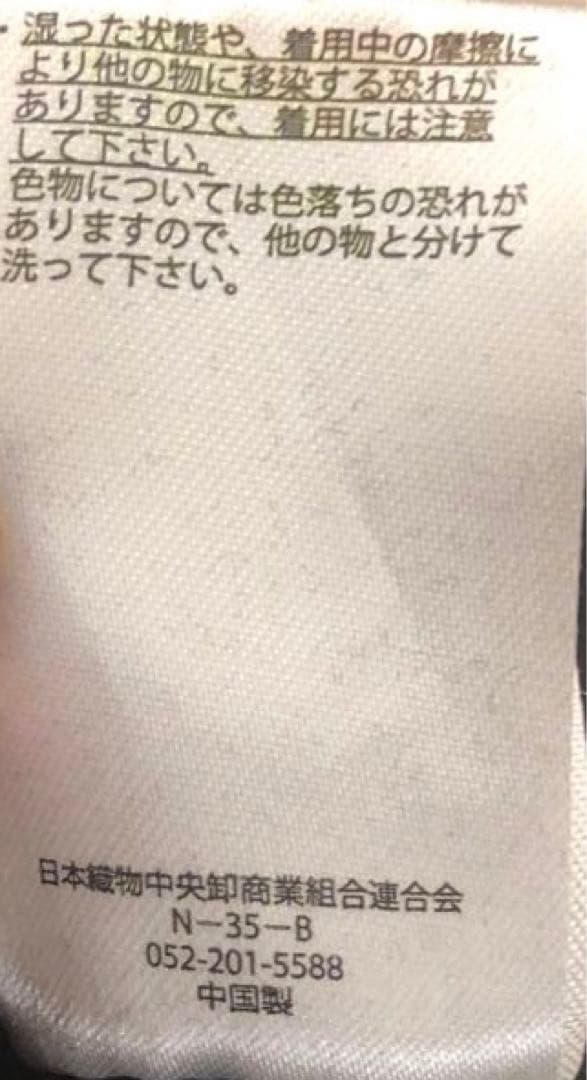 ・湿った状態や、着用中の摩擦に
より他の物に移染する恐れが
ありますので、着用には注意
して下さい。
色物については色落ちの恐れが
ありますので、他の物と分けて
洗って下さい。
日本織物中央卸商業組合連合会
N－35－B
052-201-5588
中国製